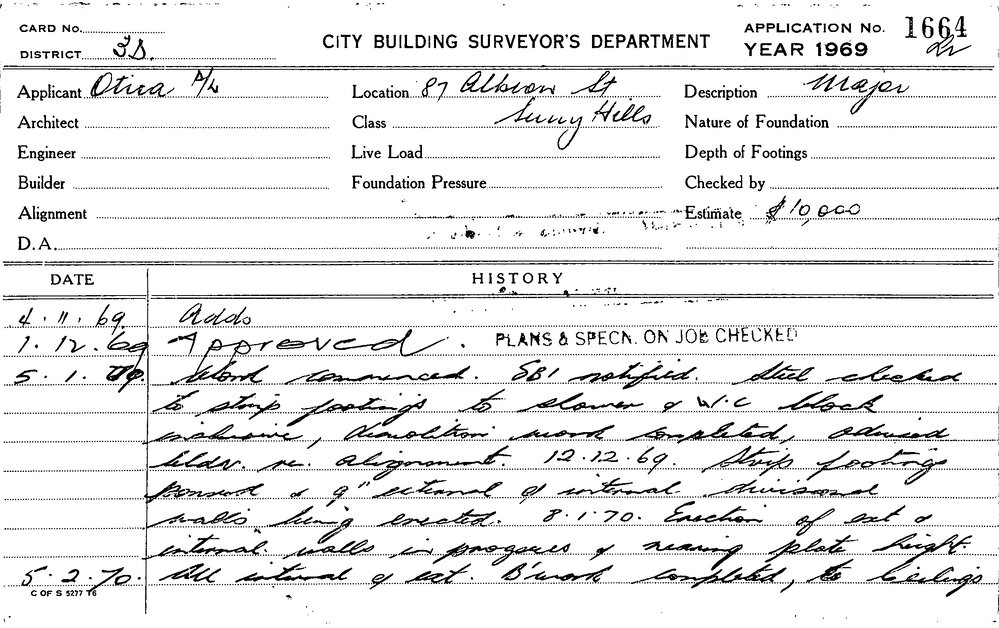 CARD No.
DISTRICT 3D.
CITY BUILDING SURVEYOR'S DEPARTMENT
APPLICATION No. 1664
YEAR 1969
Applicant Otira P/L Location 87 Albion St Description Major
Architect Class Surry Hills Nature of Foundation
Engineer Live Load Depth of Footings
Builder Foundation Pressure Checked by
Alignment Estimate $10,000
D.A.
DATE HISTORY
4.11.69. Adds
1.12.69 Approved. PLANS & SPECN. ON JOB CHECKED
5.1. Work commenced. SBI notified. Steel checked
to strip footings to shower & W.C block
inclusive, demolition work completed, advised
bldr. re. alignment. 12.12.69. Strip footings
poured & 9" external & internal divisional
walls being erected. 8.1.70. Erection of ext &
internal walls in progress & nearing plate height.
5.2.70. All internal & ext. B'work completed, to ceilings
C OF S 5277 T6